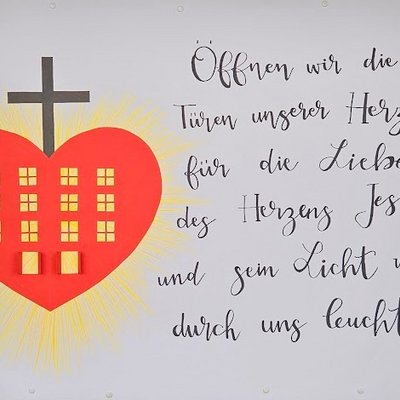 Öffnen wir die
Türen unserer Herz
für die Liebe
des Herzens Jes
und sein Licht
durch uns leucht